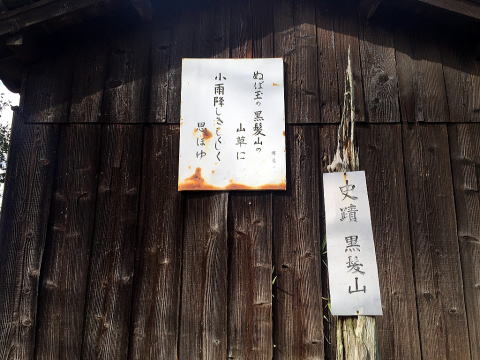 ぬば玉の黒髪山の
山草に
小雨降りしきしくしく
思ほゆ
史蹟 黒髪山